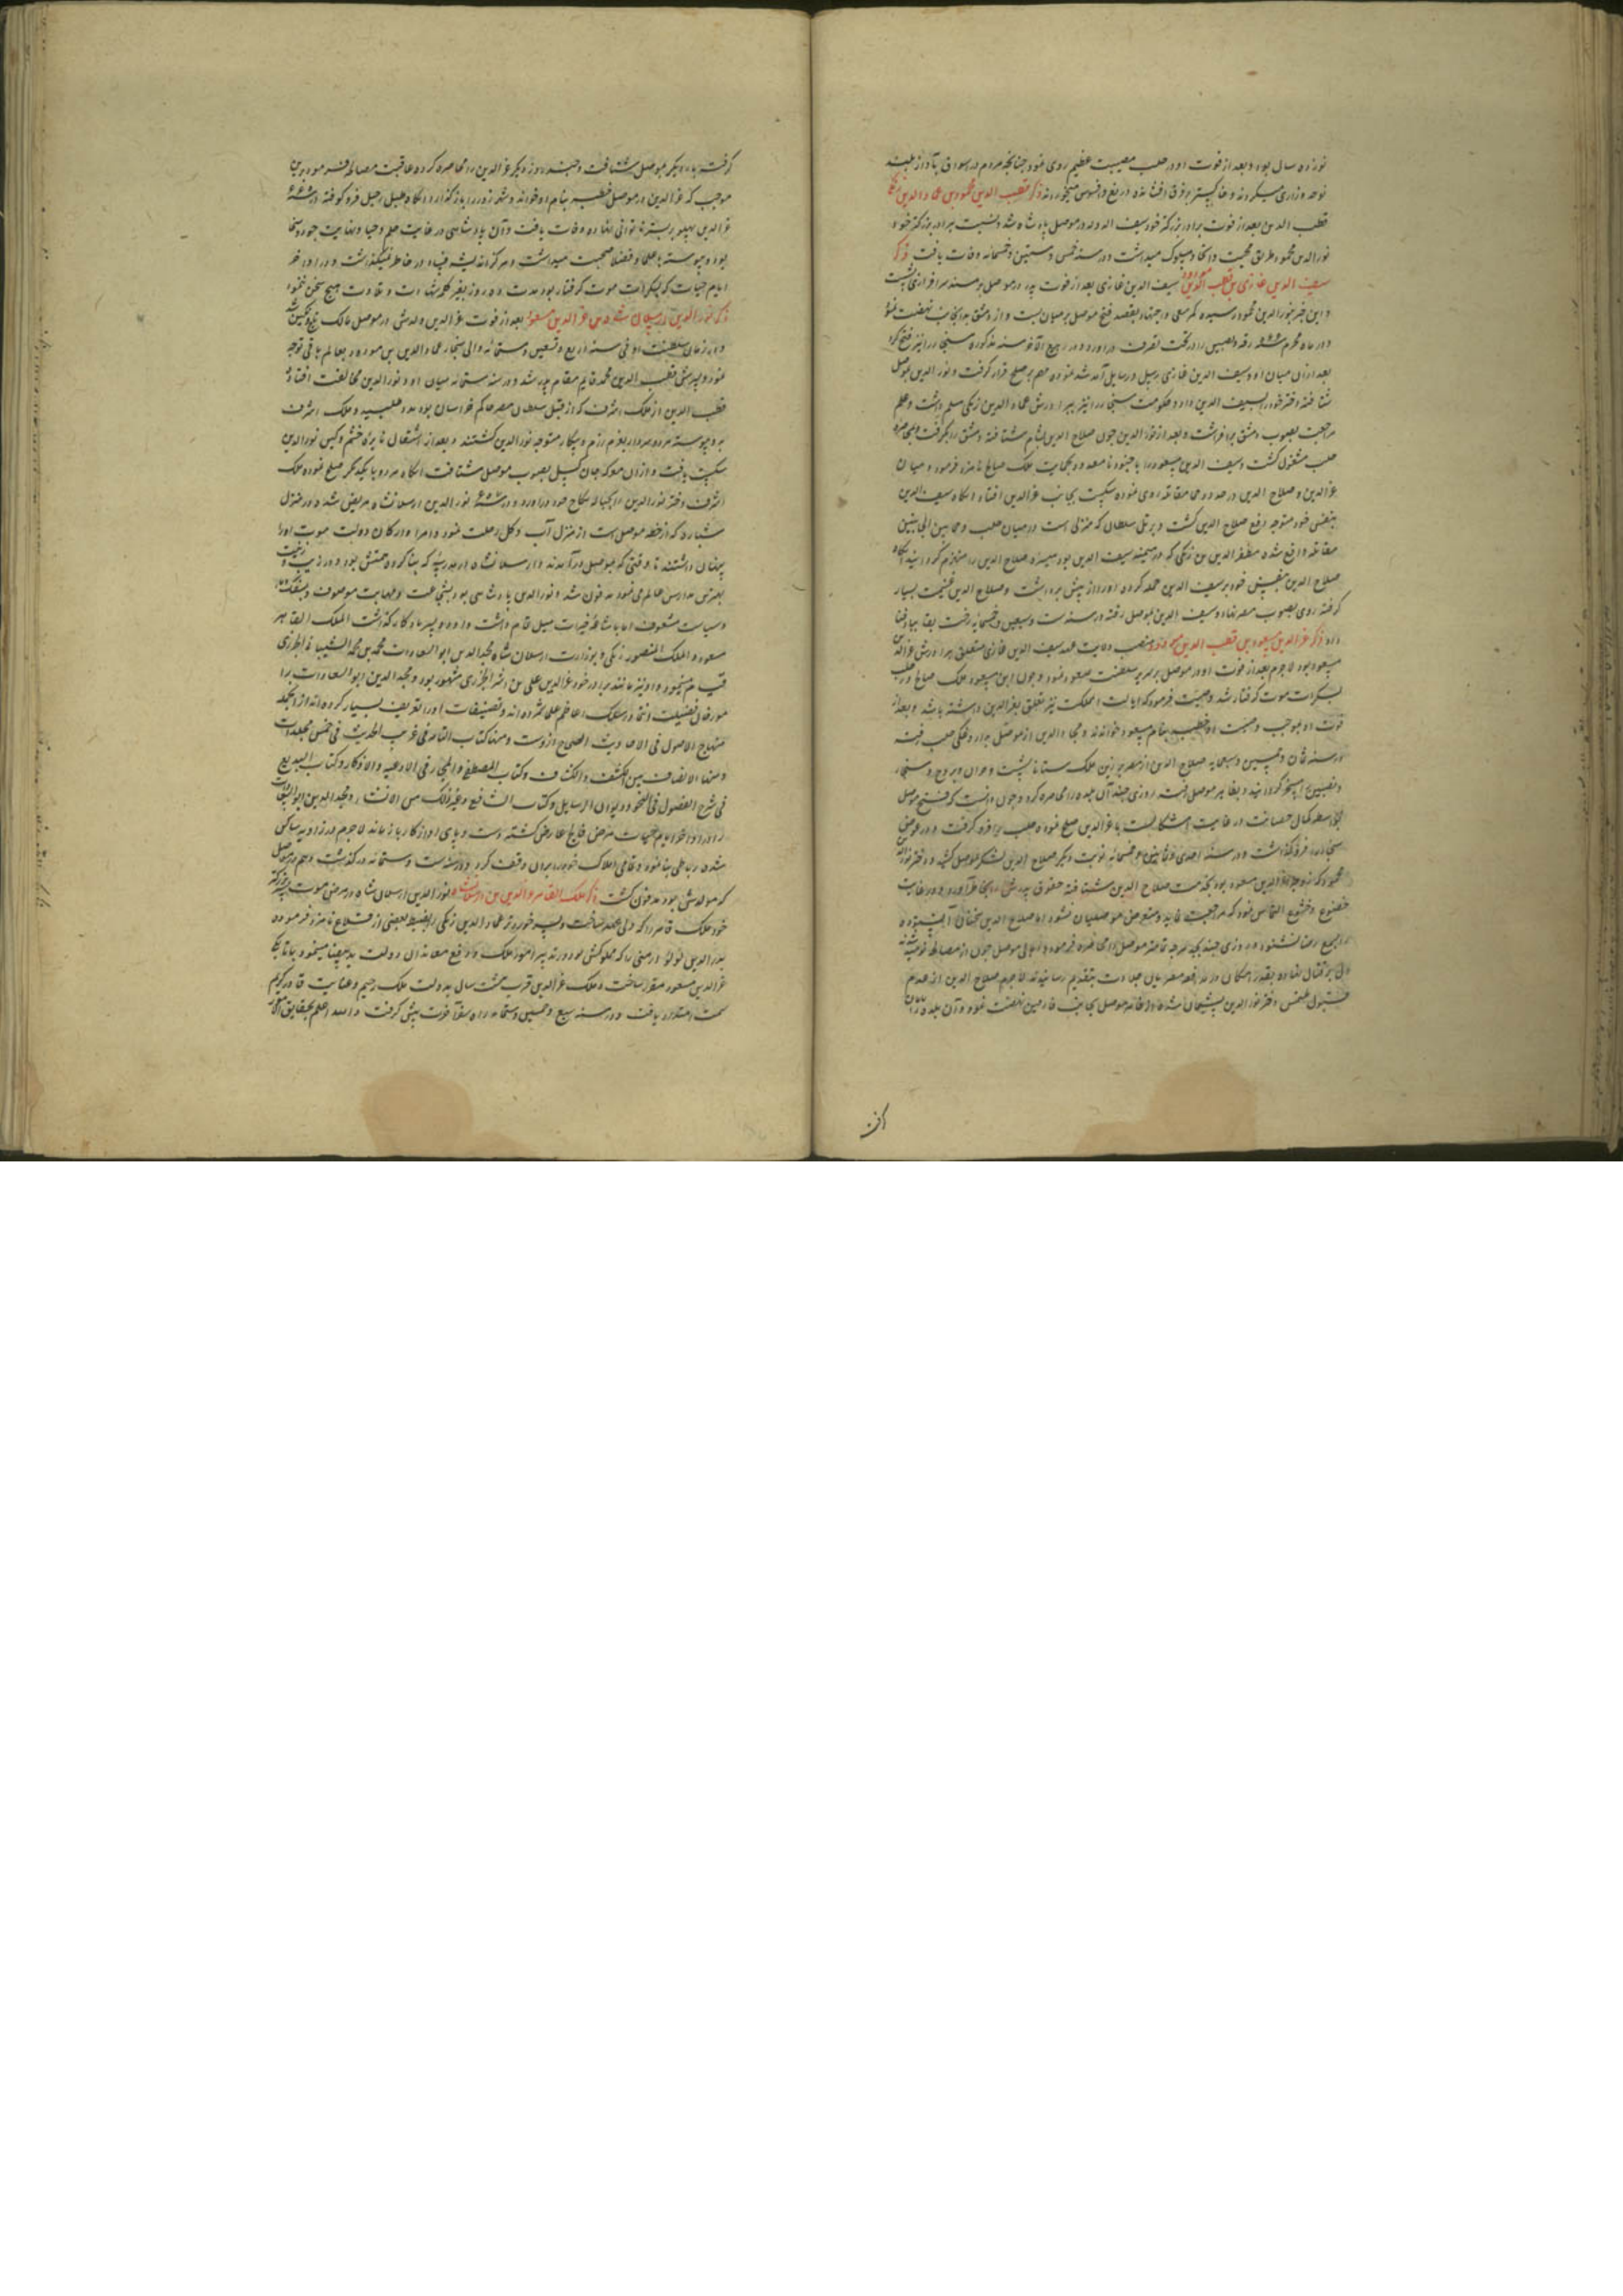 نوزده سال بود و بعد از فوت او در حلب مصیبت عظیم روی نمود چنانچه مردم در اسواق بآواز بلند
نوحه و زاری میکردند و خاکستر بر فرق افشانده دریغ و افسوس میخوردند ذکر قطب الدین محمود بن عماد الدین زنگی
قطب الدین بعد از فوت برادر بزرگتر خود سیف الدوله در موصل پادشاه شد و نسبت ببرادر بزرگتر خود
نور الدین محمود طریق محبت و اتحاد مسلوک میداشت و در سنه خمس و ستین و خمسمائه وفات یافت ذکر
سیف الدین غازی بن قطب الدین مودود سیف الدین غازی بعد از فوت پدر در موصل بر مسند سرافرازی نشست
و این خبر بنور الدین محمود رسیده کمر سعی و اجتهاد بقصد فتح موصل بر میان بست و از دمشق بدانجانب نهضت نمود
و در ماه محرم رقه و نصیبین را در تحت تصرف درآورد و در ربیع الآخر سنه مذکوره سنجار را نیز فتح کرد
بعد از آن میان او و سیف الدین غازی رسل و رسایل آمد شد نموده مهم بر صلح قرار گرفت و نور الدین بموصل
شتافته دختر خود را بسیف الدین داد و حکومت سنجار را نیز ببرادرش عماد الدین زنگی مسلم داشت و علم
مراجعت بصوب دمشق برافراشت و بعد از نور الدین چون صلاح الدین بشام شتافته دمشق را بگرفت و بمحاصره
حلب مشغول گشت و سیف الدین مسعود را با جنود نامعدود بحمایت ملک صالح نامزد فرمود و میان
عز الدین و صلاح الدین در حدود حما مقاتله روی نموده شکست بجانب عز الدین افتاد آنگاه سیف الدین
بنفس خود متوجه دفع صلاح الدین گشت و در تل سلطان که منزلی است در میان حلب و حما بین الجانبین
مقاتله واقع شده مظفر الدین بن زنگی که در میمنه سیف الدین بود میسره صلاح الدین را منهزم گردانید آنگاه
صلاح الدین بنفس خود بر سیف الدین حمله کرده او را از پیش برداشت و صلاح الدین غنیمت بسیار
گرفته روی بصوب مصر نهاد و سیف الدین بموصل رفته در سنه ست و سبعین و خمسمائه رخت بقا بباد فنا
داد ذکر عز الدین مسعود بن قطب الدین مودود منصب ولایت عهد سیف الدین غازی متعلق ببرادرش عز الدین
مسعود بود لاجرم بعد از فوت او در موصل بر سریر سلطنت صعود نمود و چون ابن مسعود ملک صالح در حلب
بسکرات موت گرفتار شد وصیت فرمود که ایالت آن مملکت نیز تعلق بعز الدین داشته باشد و بعد از
فوت او بموجب وصیت او خطبه بنام مسعود خواندند و عماد الدین از موصل بدار الملک حلب رفت
صلاح الدین از مصر
و نصیبین را مسخر گردانید و بظاهر موصل رفته روزی چند آن بلده را محاصره کرد و چون دانست که فتح موصل
بواسطه کمال حصانت در غایت اشکالست با عز الدین صلح نموده حلب را فرو گرفت و در عوض
سنجار را فرو گذاشت و در سنه احدی و ثمانین و خمسمائه نوبت دیگر صلاح الدین لشکر بموصل کشید و دختر نور الدین
محمود که زوجه عز الدین مسعود بود بخدمت صلاح الدین شتافته حقوق پدرش را بخاطر آورد و در غایت
خضوع و خشوع التماس نمود که مراجعت نماید و متعرض موصلیان نشود اما صلاح الدین سخنان آن ستوده
را بسمع رضا نشنود و روزی چند بجد هر چه تمامتر موصل را محاصره فرمود و اهالی موصل چون از مصالحه نومید شدند
دل بر قتال نهاده بقدر امکان در مدافعه مصریان جلادت بتقدیم رسانیدند لاجرم صلاح الدین از عدم
قبول ملتمس دختر نور الدین پشیمان شده از ظاهر موصل بجانب میافارقین نهضت نمود و آن بلده را
گرفته بار دیگر بموصل شتافت و چند روز دیگر عز الدین را محاصره کرده عاقبت مصالحه فرمود برین
موجب که عز الدین در موصل خطبه بنام او خواند و شهرزور را باز گذارد آنگاه طبل رحیل فرو کوفته
عز الدین پهلو بر بستر ناتوانی نهاده وفات یافت و آن پادشاهی در غایت حلم و حیا و نهایت جود و سخا
بود و پیوسته با علما و فضلا صحبت میداشت و هرگز اندیشه فساد در خاطر نمیگذاشت و در اواخر
ایام حیات که بسکرات موت گرفتار بود مدت ده روز بغیر کلمه شهادت و تلاوت هیچ سخن نفرمود
ذکر نور الدین ارسلان شاه بن عز الدین مسعود بعد از فوت عز الدین ولدش در موصل مالک تاج و نگین شد
و در زمان سلطنت او فی سنه اربع و تسعین و ستمائه والی سنجار عماد الدین بن مودود بعالم باقی توجه
نمود و پسرش قطب الدین محمد قایم مقام پدر شد و در سنه ستمائه میان او و نور الدین مخالفت افتاد
قطب الدین از ملک اشرف که از قبل سلطان مصر حاکم خراسان بود مدد طلبید و ملک اشرف
بدو پیوسته هر دو سردار بعزم رزم و پیکار متوجه نور الدین گشتند و بعد از اشتعال نایره خشم و کین نور الدین
شکست یافت و از آن معرکه جان گسل بصوب موصل شتافت آنگاه هر دو با یکدیگر صلح نموده ملک
اشرف دختر نور الدین را بحباله نکاح خود درآورد و در نور الدین ارسلانشاه مریض شد و در منزل
شباره که از خطه موصل است از منزل آب و گل رحلت نمود و امرا و ارکان دولت موت او را
پنهان داشتند تا وقتی که بموصل درآمدند و ارسلانشاه در مدرسه که بنا کرده همتش بود و در زیب و زینت
بهترین مدارس عالم می نمود مدفون شد و نور الدین پادشاهی بود بشجاعت و مهابت موصوف و بسفک دماء
و سیاست مشعوف اما باشاعه خیرات میل تمام داشت و ازو دو پسر یادگار گذاشت الملک القاهر
مسعود و الملک المنصور زنگی و بوزارت ارسلان شاه مجد الدین ابو السعادات محمد بن محمد الشیبانی الجزری
قیام مینمود و او نیز مانند برادر خود عز الدین علی بن اثیر الجزری مشهور بود و مجد الدین ابو السعادات را
مورخان فضیلت انتما در سلک اعاظم علما شمرده اند و تصنیفات او را تعریف بسیار کرده اند از آنجمله
منهاج الاصول فی الاحادیث الصحیح ازوست و منها کتاب النهایه فی غریب الحدیث فی خمس مجلدات
و منها الانصاف بین الکشف و الکشاف و کتاب المصطفی و المختار فی الادعیه و الاذکار و کتاب البدیع
فی شرح الفصول فی النحو و دیوان الرسایل و کتاب الشافی و غیر ذلک من الانشاء و مجد الدین ابو السعادات
را در اواخر ایام حیات مرض فالج عارض گشته دست و پای او از کار باز ماند لاجرم در زاویه ساکن
شده رباطی بنا نمود و تمامی املاک خود را بر آن وقف کرد و در سنه ست و ستمائه درگذشت و هم در موصل
که مولدش بود مدفون گشت ذکر ملک القاهر عز الدین بن ارسلانشاه نور الدین ارسلان شاه در مرض موت پسر بزرگتر
خود ملک قاهر را که ولی عهد ساخت و پسر خوردتر عماد الدین زنگی را بضبط بعضی از قلاع نامزد فرموده
بدر الدین لولو ارمنی را که مملوکش بود در تدبیر امور ملک و دفع معاندان دولت ید بیضا مینمود باتابکی
عز الدین مسعود مقرر ساخت و ملک عز الدین قرب هشت سال بدولت ملک رحیم و عنایت قادر کریم
سمت امتداد یافت و در سنه سبع و خمسین و ستمائه راه سفر آخرت پیش گرفت و الله اعلم بحقایق الامور